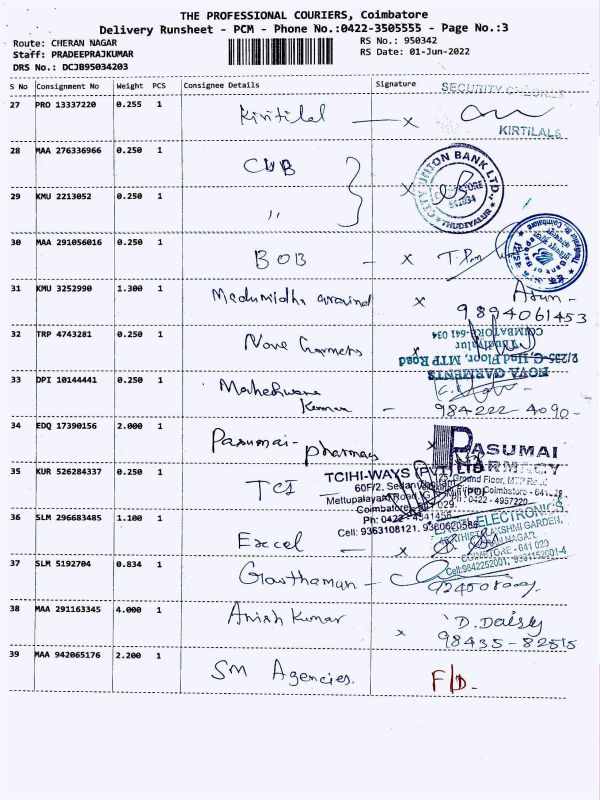 THE PROFESSIONAL COURIERS, Coimbatore
Delivery Runsheet - PCM - Phone No.:0422-3505555 - Page No.:3
Route: CHERAN NAGAR
RS No.: 950342
Staff: PRADEEPRAJKUMAR
RS Date: 01-Jun-2022
DRS No.: DCJB95034203
S No Consignment No Weight PCS Consignee Details Signature
27 PRO 13337220 0.255 1 Kiritilal x
KIRTILALS
28 MAA 276336966 0.250 1 CUB x
CITY UNION BANK LTD.
THUDIYALUR
29 KMU 2213052 0.250 1 "
30 MAA 291056016 0.250 1 BOB - x
31 KMU 3252990 1.300 1 Madumidha aravind x Arun -
9894061453
32 TRP 4743281 0.250 1 Nova Garments x
COIMBATORE-641 034
Thudiyalur
2/235-C, IInd Floor, MTP Road
NOVA GARMENTS
33 DPI 10144441 0.250 1 Maheshwara
Kumar - 984222 4090-
34 EDQ 17390156 2.000 1 Pasumai-pharmacy x
PASUMAI
PHARMACY
35 KUR 526284337 0.250 1 TCI
TCIHI-WAYS (PVT) LTD
Ground Floor, MTP Road
Mettupalayam Road
Ph: 0422-4957220
Cell: 9363108121
36 SLM 296683485 1.100 1 Excel - x
EXCEL ELECTRONICS
LAKSHMI GARDEN,
COIMBATORE - 641 029
37 SLM 5192704 0.834 1 Gowthaman -
38 MAA 291163345 4.000 1 Anish Kumar x D. Daisy
98435-82515
39 MAA 942065176 2.200 1 SM Agencies. F/D.